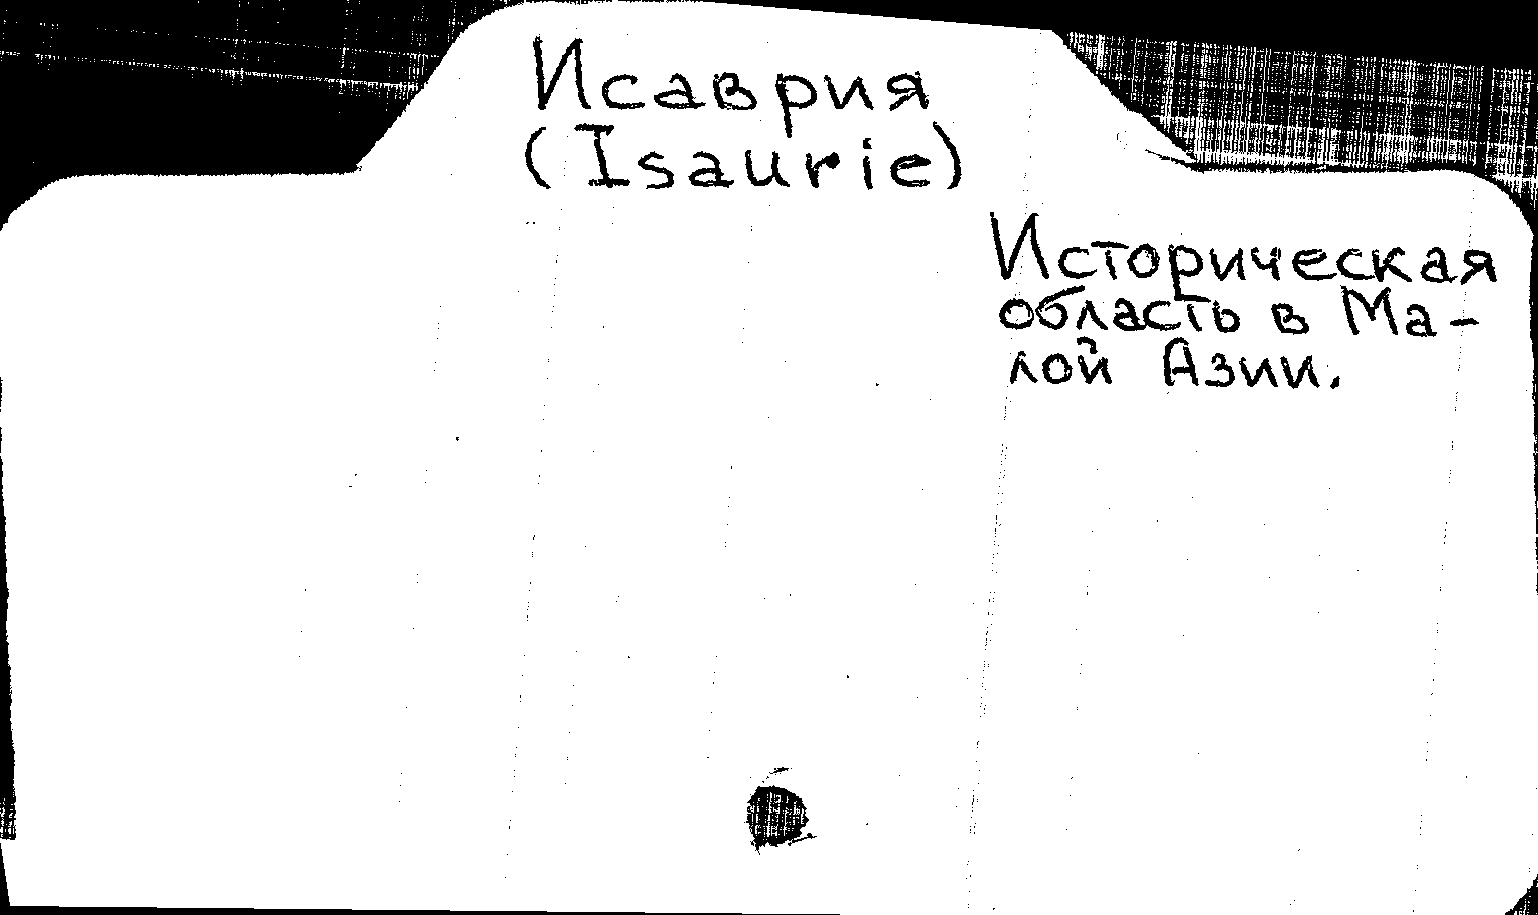 Исаврия
(Isaurie)
Историческая
область в Ма-
лой Азии.